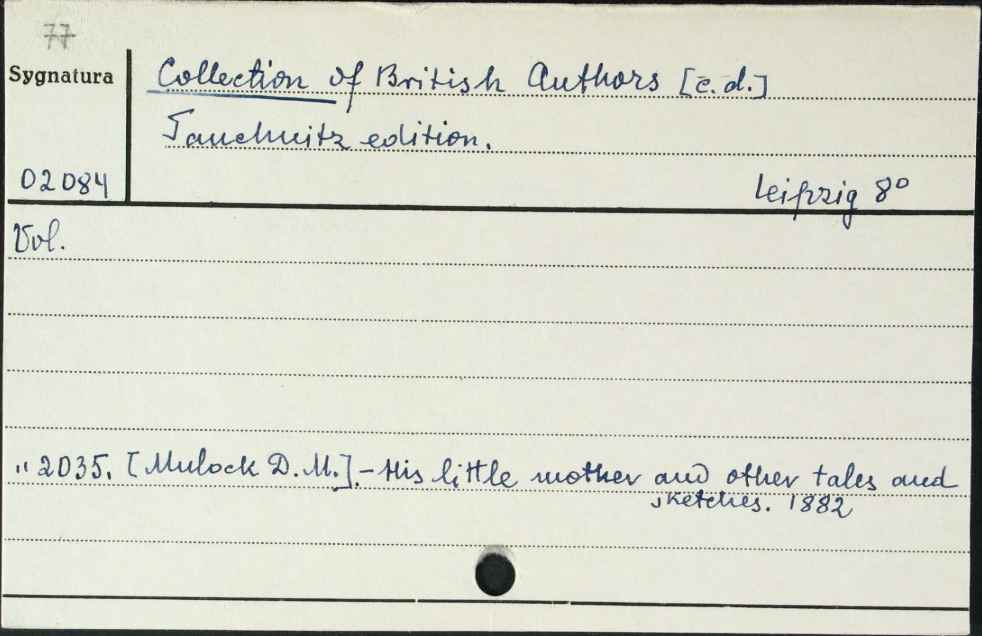 77
Sygnatura
Collection of British Authors [c.d.]
Tauchnitz edition.
02084
Leipzig 8°
Vol.
" 2035. [Mulock D.M.].- His little mother and other tales and
sketches. 1882